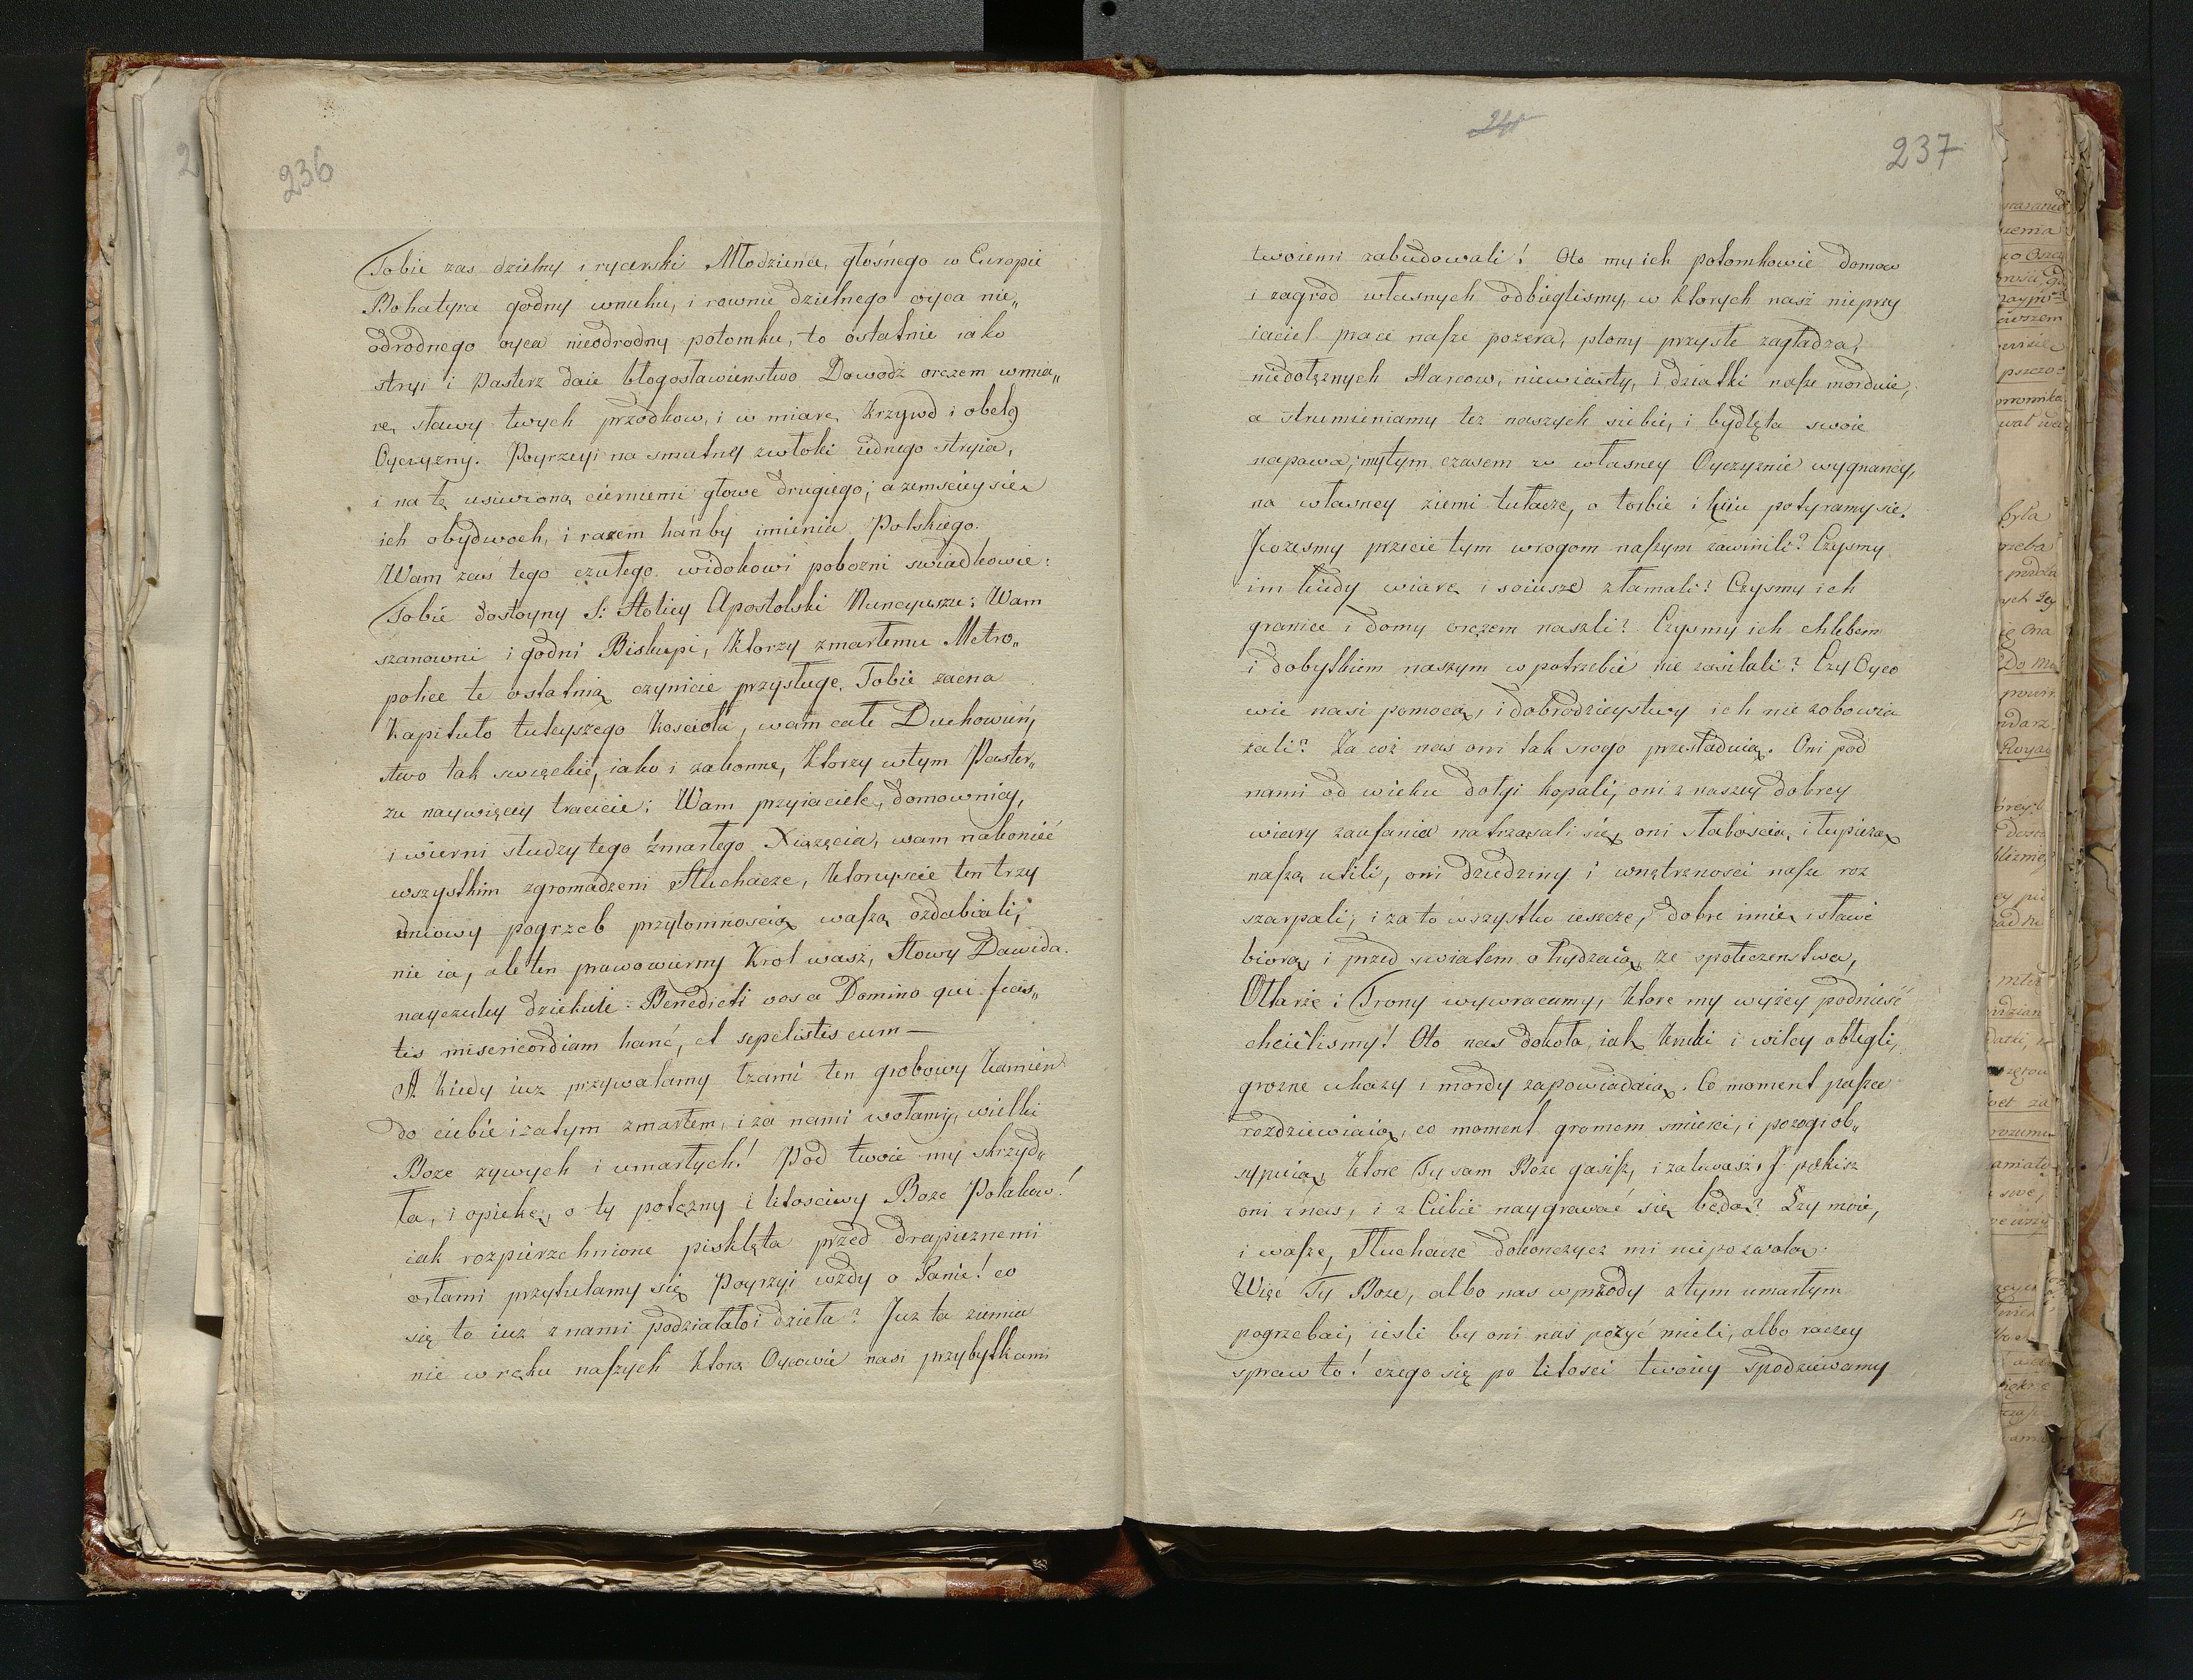 236
Tobie zas dzielny i rycerski Młodzience, głośnego w Europie
Bohatyra godny wnuku, i rownie dzielnego oyca nie„
odrodnego oyca nieodrodny potomku, to ostatnie iako
stryi i Pasterz daie błogosławienstwo Dowodź orezem w mia„
rę, sławy twych przodkow, i w miarę krzywd i obelg
Oyczyzny. Poyrzeyi na smutney zwłoki iednego stryia,
i na tę usiwioną cierniemi głowe drugiego; a zemsciey się
ich obydwoch, i razem hańby imienia Polskiego.
Wam zas tego czułego widokowi pobozni swiadkowie:
Tobie dostoyny S: Stolicy Apostolski Nuncyuszu: Wam
szanowni i godni Biskupi, ktorzy zmarłemu Metro„
policie te ostatnią czynicie przysługę, Tobie zacna
Kapituło tuteyszego Koscioła, wam całe Duchowień„
stwo tak swięckie, iako i zakonne, ktorzy w tym Paster„
zu naywięcey tracicie; Wam przyiaciele, domownicy,
i wierni słudzy tego zmarłego Xiążęcia, wam nakoniec
wszystkim zgromadzeni Słuchacze, ktorzyscie ten trzy
dniowy pogrzeb przytomnoscią waszą ozdabiali;
nie ia, ale ten prawowierny Krol wasz, słowy Dawida
nayczuley dziekuie = Benedicti vos a Domino qui fecis„
tis misericordiam hanc, et sepelistis eum —
A kiedy iuz przywalamy łzami ten grobowy kamień
do ciebie i za tym zmarłem, i za nami wołamy, wielki
Boze zywych i umarłych! Pod twoie my skrzyd„
ła, i opiekę, o ty potęzny i litosciwy Boze Polakow!
iak rozpierzchnione pisklęta przed drapieznemi
orłami przytulamy się Poyrzyi wżdy o Panie! co
się to iuz z nami podziałało i dzieła? Juz ta ziemia
nie w ręku naszych ktorą Oycowie nasi przybytkami
237
twoiemi zabudowali! Oto my ich potomkowie domow
i zagrod własnych odbieglismy, w ktorych nasz nieprzy
iaciel prace nasze pozera, plony przyszłe zagładza,
niedołęznych starcow, niewiasty, i dziatki nasze morduie,
a strumieniamy łez naszych siebie, i bydlęta swoie
napawa; my tym czasem w własney Oyczyznie wygnancy,
na własney ziemi tułacze, o torbie i kiiu potyramy się.
I cozesmy przecie tym wrogom naszym zawinili? Czysmy
im kiedy wiarę i soiusze złamali? Czysmy ich
granice i domy oręzem naszli? Czysmy ich chlebem
i dobytkiem naszym w potrzebie nie zasilali? Czy Oyco
wie nasi pomocą, i dobrodzieystwy ich nie zobowią
zali? Za coż nas oni tak srogo przesladuią. Oni pod
nami od wieku doły kopali, oni z naszey dobrey
wiary zaufania natrząsali się, oni słaboscią, i łupiezą
naszą utili, oni dziedziny i wnętrznosci nasze roz
szarpali; i za to wszystko ieszcze, dobre imie i sławe
biorą, i przed swiatem ohydzaią, ze społeczenstwa,
Ołtarze i Trony wywracamy, ktore my wyżey podniesć
chcielismy! Oto nas dokoła, iak kruki i wilcy oblegli,
grozne ukazy i mordy zapowiadaią. Co moment paszcze
rozdziewiaią, co moment gromem smierci, i pozogi ob„
sypuią, ktore Ty sam Boze gasisz, i zalewasz. I pokisz
oni z nas, i z Ciebie naygrawać się będą? Łzy moie,
i wasze, Słuchacze dokonczyc mi niepozwolą.
Więc Ty Boze, albo nas wprzody z tym umarłym
pogrzebai, iesli by oni nas pożyć mieli, albo raczey
spraw to! czego się po litosci twoiey spodziewamy